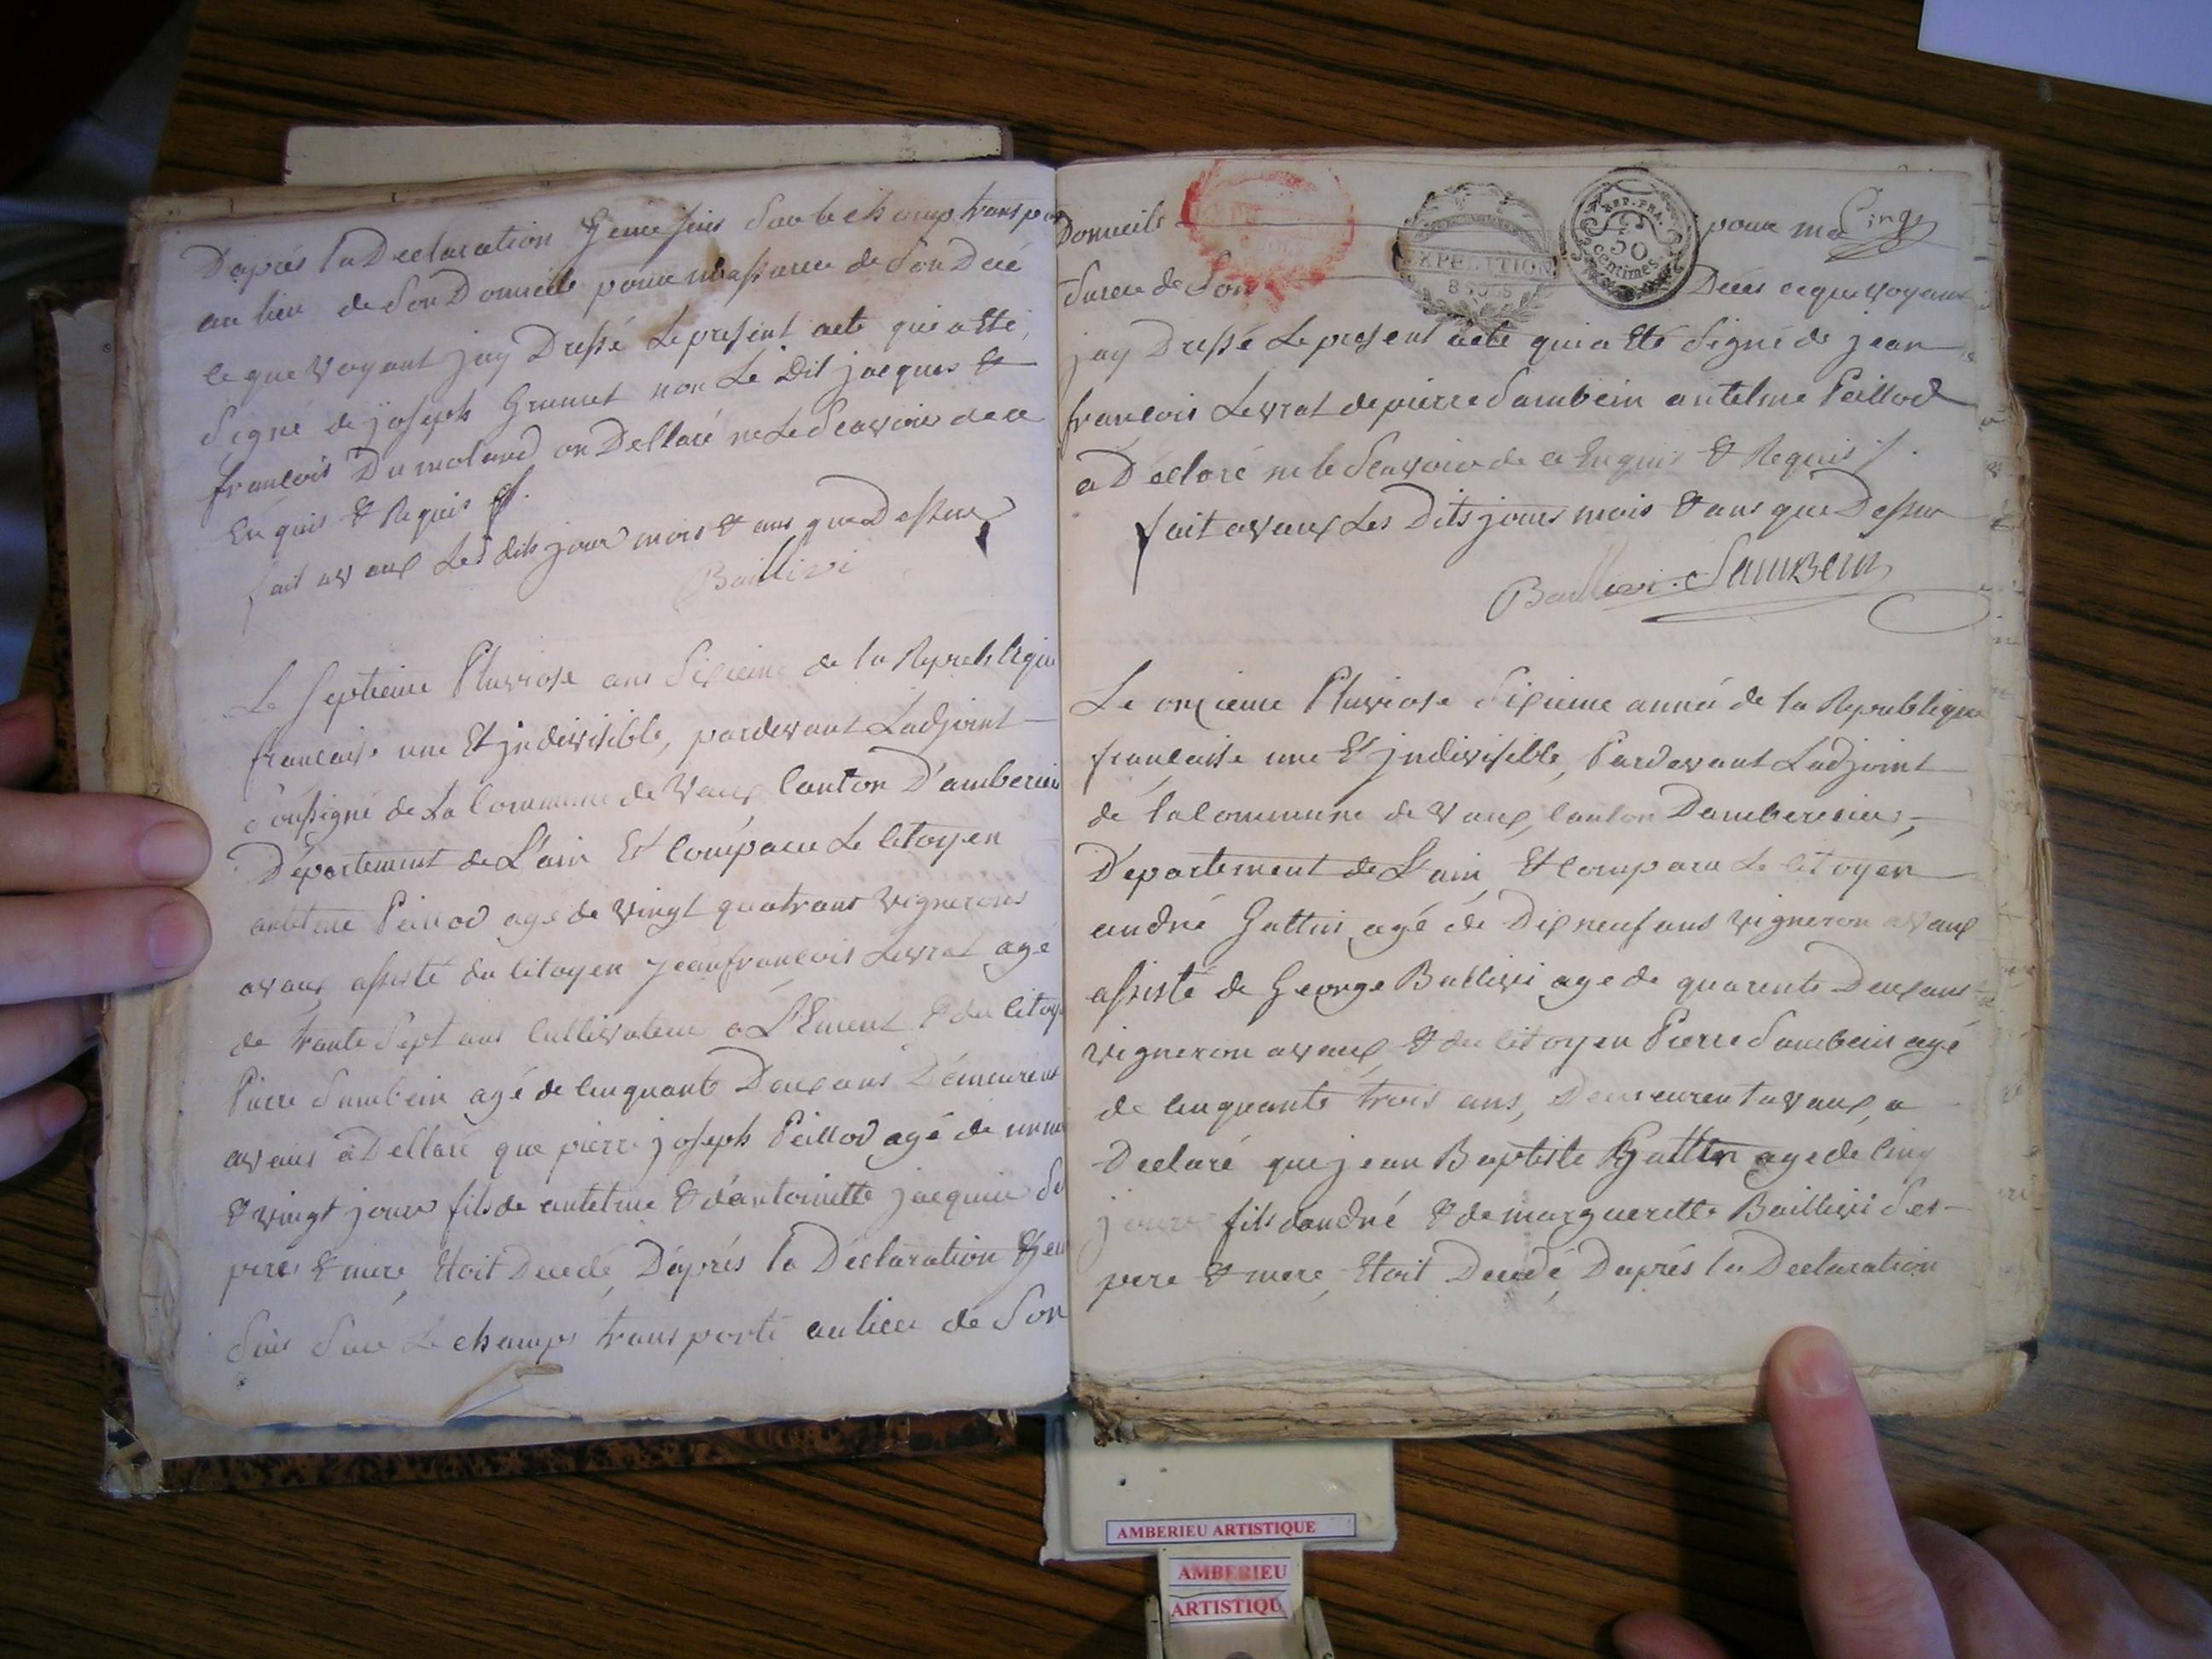 D'aprés la Declaration & jeme suis sur le champ transpor
au lieu de son Domicile pour massurer de son Décé
ce que voyant jay Dressé le present acte qui a été
signé de joseph Grumet non le dit jacques &
francois Dumoland on Dellaré ne le scavoir de ce
Enquis & Requis /.
fait a vaux les dits jour mois & ans que Dessus
Baillivi
Le septieme Pluviose ans sixieme de la Republique
francaise une Et jndivisible, pardevant Ladjoint
soussigné de La Commune de Vaux Canton D'amberieu
Département de L'ain Et Comparu Le Citoyen
antelme Peillod agé de vingt quatrans vignerons
a vaux assisté du Citoyen jean francois Levrat agé
de trante sept ans Cultivateur a L'Ement & du Citoy
Pierre Sambein agé de Cinquante Deux ans Demeurent
a vaux a Dellaré que pierre joseph Peillod agé de
& vingt jours fils de antelme & d'antoinette jacquin Se
pere & mere, Etoit Decedé, D'aprés la Déclaration & jeu
suis sur Le champs transporté au lieu de Son
Domicile pour ma
Cinq
EXPEDITION
8 SOLS
REP. FRA.
50
Centimes.
surer de Son Décés ce que voyant
jay Dressé Le present acte qui a Eté signé de jean
francois Levrat de pierre Sambein antelme Peillod
a Déclaré ne le Scavoir de ce Enquis & Requis /.
fait a vaux Les Dits jours mois & ans que Dessus
Baillivi. SamBein
Le onzieme Pluviose Sixieme année de la Republique
francaise une Et jndivisible, Pardevant Ladjoint
de la Commune de Vaux, Canton Damberieux,
Département de L'ain, Et Comparu Le Citoyen
andré Guttin agé de Dix neuf ans vigneron a vaux
assisté de George Ballivi age de quarente Deux ans
vigneron a vaux, & du Citoyen Pierre Sambein agé
de Cinquante trois ans, Demeurent a vaux, a
Declaré que jean Baptiste Guttin age de Cinq
jours fils dandré & de marguerette Baillivi Ses
pere & mere, Etoit Decedé, D'aprés la Declaration
AMBERIEU ARTISTIQUE
AMBERIEU
ARTISTIQU